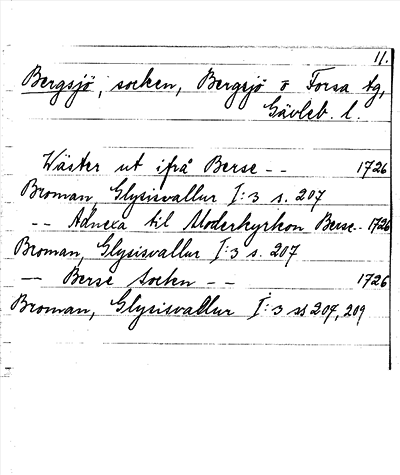 11.
Bergsjö, socken, Bergsjö o Forsa tg,
Gävleb. l.
Wäster ut ifrå Berse - - 1726
Broman, Glysisvallur I:3 s. 207
- - til Moderkyrkon Berse - - 1726
Broman, Glysisvallur I:3 s. 207
- - Berse Socken - - 1726
Broman, Glysisvallur I:3 ss 207, 209